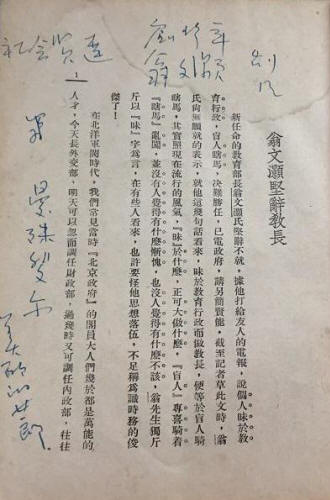 社会賢達
翁文灝
翁文灝堅辭教長
新任命的教育部長翁文灝氏堅辭不就,據他打給友人的電報,說『個人昧於教
育行政,盲人瞎馬,決難勝任,已電政府,請另簡賢能,』截至記者草此文時,翁
氏尚無續就的表示,就他這幾句話看來,昧於教育行政而做教長,便等於盲人騎
瞎馬,其實照現在流行的風氣,『昧』於什麼,正可大做什麼,『盲人』專喜騎着
『瞎馬』亂闖,並沒有人覺得有什麼慚愧,也沒人覺得有什麼不該,翁先生獨斤
斤以『昧』字爲言,在有些人看來,也許要怪他思想落伍,不足稱爲識時務的俊
傑了!
在北洋軍閥時代,我們常見當時『北京政府』的閣員大人們幾於都是萬能的
人才,今天長外交部,明天可以忽而調任財政部,過幾時又可調任內政部,往往
1